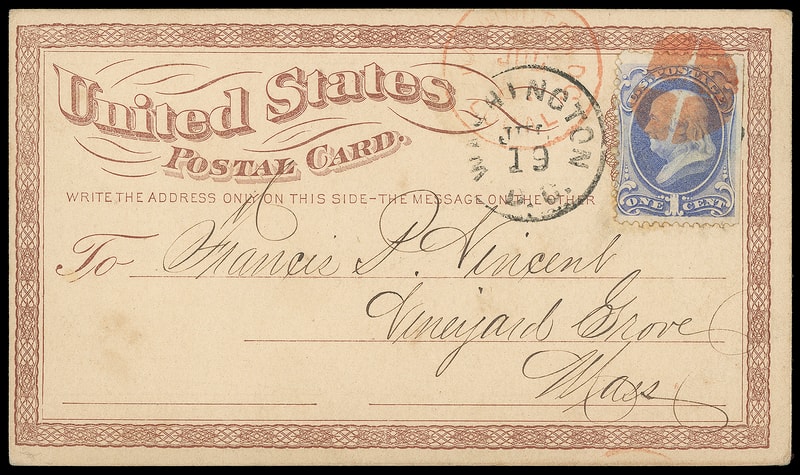 United States
POSTAL CARD.
WRITE THE ADDRESS ONLY ON THIS SIDE–THE MESSAGE ON THE OTHER
WASHINGTON
19
D.C.
U.S. POSTAGE
ONE 1 CENT
To Francis P. Vincent
Vineyard Grove
Mass